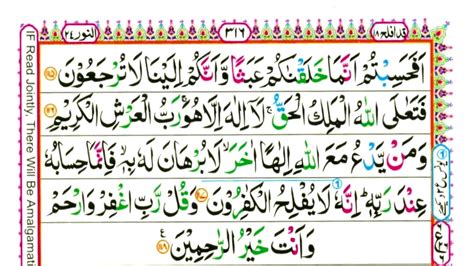 قد افلح ۱۸
۳۱۶
النور ۲۴
اَفَحَسِبْتُمْ اَنَّمَا خَلَقْنٰكُمْ عَبَثًا وَّ اَنَّكُمْ اِلَيْنَا لَا تُرْجَعُوْنَ ﴿۱۱۵﴾
فَتَعٰلَى اللّٰهُ الْمَلِكُ الْحَقُّ ۚ لَاۤ اِلٰهَ اِلَّا هُوَ ۚ رَبُّ الْعَرْشِ الْكَرِيْمِ ﴿۱۱۶﴾
وَ مَنْ يَّدْعُ مَعَ اللّٰهِ اِلٰهًا اٰخَرَ ۙ لَا بُرْهَانَ لَهٗ بِهٖ ۙ فَاِنَّمَا حِسَابُهٗ
عِنْدَ رَبِّهٖ ؕ اِنَّهٗ لَا يُفْلِحُ الْكٰفِرُوْنَ ﴿۱۱۷﴾ وَ قُلْ رَّبِّ اغْفِرْ وَ ارْحَمْ
وَ اَنْتَ خَيْرُ الرّٰحِمِيْنَ ﴿۱۱۸﴾
IF Read Jointly, There Will Be Amalgamati